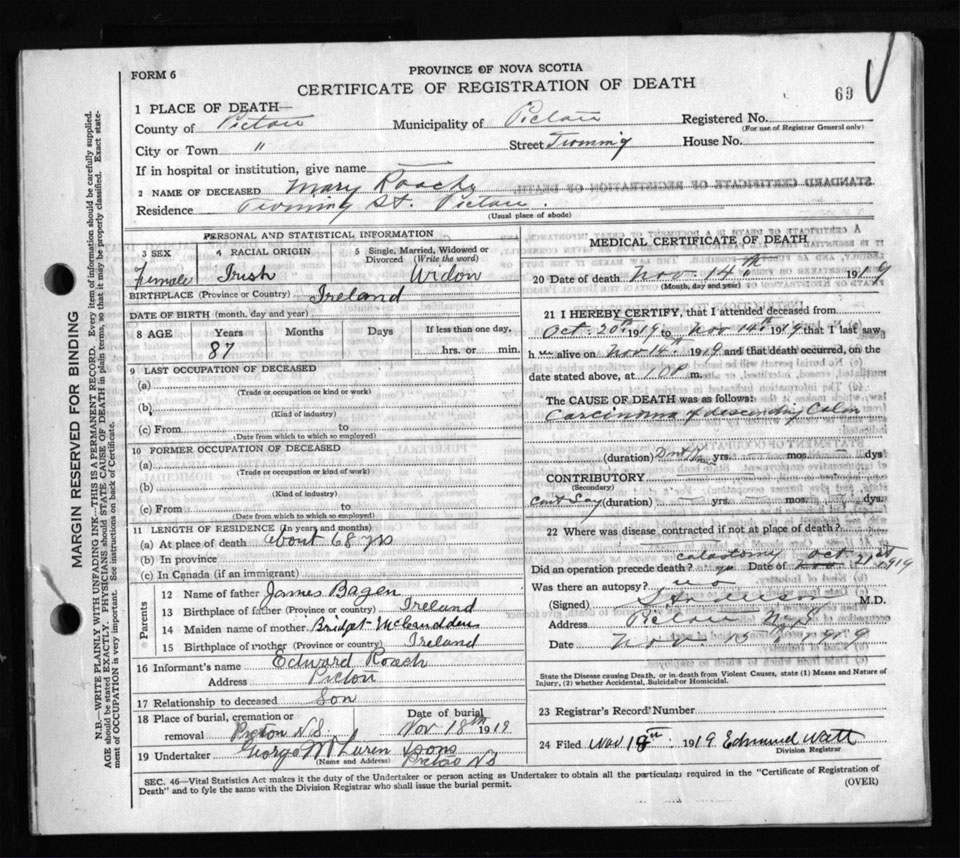 PROVINCE OF NOVA SCOTIA
FORM 6
CERTIFICATE OF REGISTRATION OF DEATH
69
1 PLACE OF DEATH—
County of Pictou Municipality of Pictou Registered No.
(For use of Registrar General only)
City or Town " Street House No.
If in hospital or institution, give name —
STANDARD CERTIFICATE OF REGISTRATION OF DEATH.
2 NAME OF DECEASED Mary Roach
Residence St. Pictou.
(Usual place of abode)
PERSONAL AND STATISTICAL INFORMATION
3 SEX Female
4 RACIAL ORIGIN Irish
5 Single, Married, Widowed or Divorced (Write the word) Widow
BIRTHPLACE (Province or Country) Ireland
DATE OF BIRTH (month, day and year)
8 AGE Years Months Days If less than one day.
87 hrs. or min.
9 LAST OCCUPATION OF DECEASED
(a)
(Trade or occupation or kind or work)
(b)
(Kind of industry)
(c) From to
(Date from which to which so employed)
10 FORMER OCCUPATION OF DECEASED
(a)
(Trade or occupation or kind of work)
(b)
(Kind of industry)
(c) From to
(Date from which to which so employed)
11 LENGTH OF RESIDENCE (In years and months)
(a) At place of death about 68 yrs
(b) In province
(c) In Canada (if an immigrant)
Parents
12 Name of father James
13 Birthplace of father (Province or country) Ireland
14 Maiden name of mother Bridget
15 Birthplace of mother (Province or country) Ireland
16 Informant's name Edward Roach
Address Pictou
17 Relationship to deceased Son
18 Place of burial, cremation or removal Pictou N.S. Date of burial Nov 18th 1919
19 Undertaker George McLaren & Sons
(Name and Address) Pictou NS
MEDICAL CERTIFICATE OF DEATH
20 Date of death Nov. 14th 1919
(Month, day and year)
21 I HEREBY CERTIFY, that I attended deceased from
Oct. 20th 1919 to Nov 14th 1919 that I last saw
h er alive on Nov 14th 1919 and that death occurred, on the
date stated above, at 10 P m.
The CAUSE OF DEATH was as follows:
Carcinoma of descending Colon
(duration) yrs. mos. dys
CONTRIBUTORY
(Secondary)
Cant Say (duration) yrs. mos. dys.
22 Where was disease contracted if not at place of death?
colostomy Oct
Did an operation precede death? Date of 21st 1919
Was there an autopsy? no
(Signed) M.D.
Address Pictou N.S.
Date Nov. 1919
State the Disease causing Death, or in death from Violent Causes, state (1) Means and Nature of Injury, (2) whether Accidental, Suicidal or Homicidal.
23 Registrar's Record Number
24 Filed Nov 1919 Edmund Watt
Division Registrar
SEC. 46—Vital Statistics Act makes it the duty of the Undertaker or person acting as Undertaker to obtain all the particulars required in the "Certificate of Registration of
Death" and to fyle the same with the Division Registrar who shall issue the burial permit. (OVER)
MARGIN RESERVED FOR BINDING
N.B.—WRITE PLAINLY WITH UNFADING INK—THIS IS A PERMANENT RECORD. Every item of information should be carefully supplied.
AGE should be stated EXACTLY. PHYSICIANS should STATE CAUSE OF DEATH in plain terms, so that it may be properly classified. Exact statement of OCCUPATION is very important. See instructions on back of Certificate.